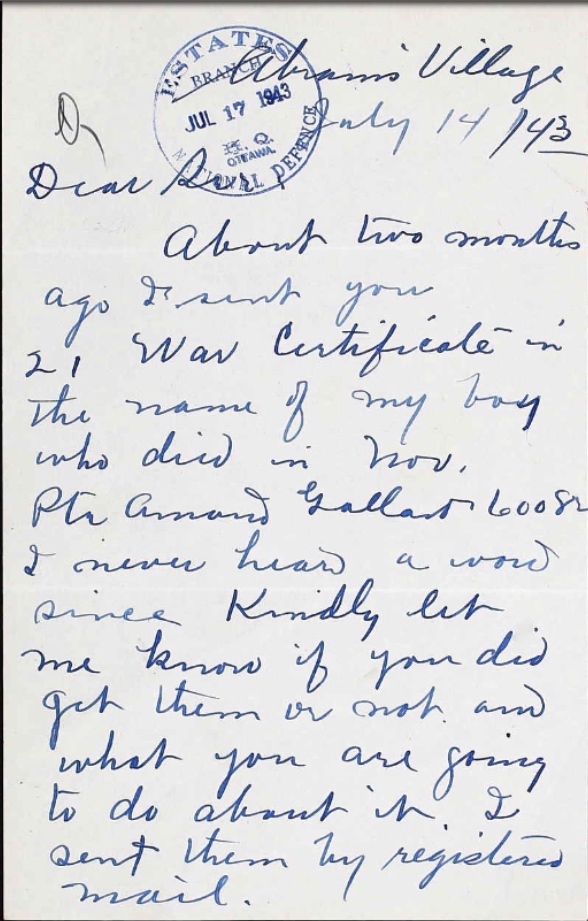 ESTATES
BRANCH
JUL 17 1943
H. Q.
OTTAWA
NATIONAL DEFENCE
Abrams Village
July 14 /43
Dear Sir,
About two months
ago I sent you
21 War Certificate in
the name of my boy
who died in Nov.
Pte Amand Gallant
I never heard a word
since Kindly let
me know if you did
get them or not and
what you are going
to do about it. I
sent them by registered
mail.